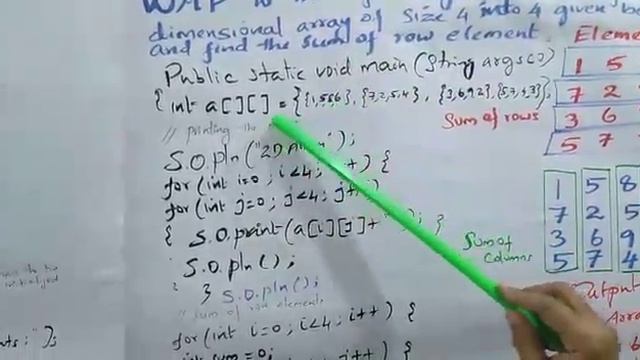 dimensional array of size 4 into 4 given
and find the sum of row element.
Public static void main (String args[])
{ int a[][] = {{1,5,8,6}, {7,2,5,4}, {3,6,9,2}, {5,7,4,3}};
// printing the
S.O.pln("2D Array");
for (int i=0; i<4; i++) {
for (int j=0; j<4; j++)
{ S.O.print(a[i][j]+ ); }
S.O.pln();
} S.O.pln();
// sum of row elements
for (int i=0; i<4; i++) {
int sum = 0;
Eleme
1 5
7 2
Sum of rows
3 6
5 7
1 5 8
7 2 5
3 6 9
5 7 4
Sum of
columns
Output
Arra